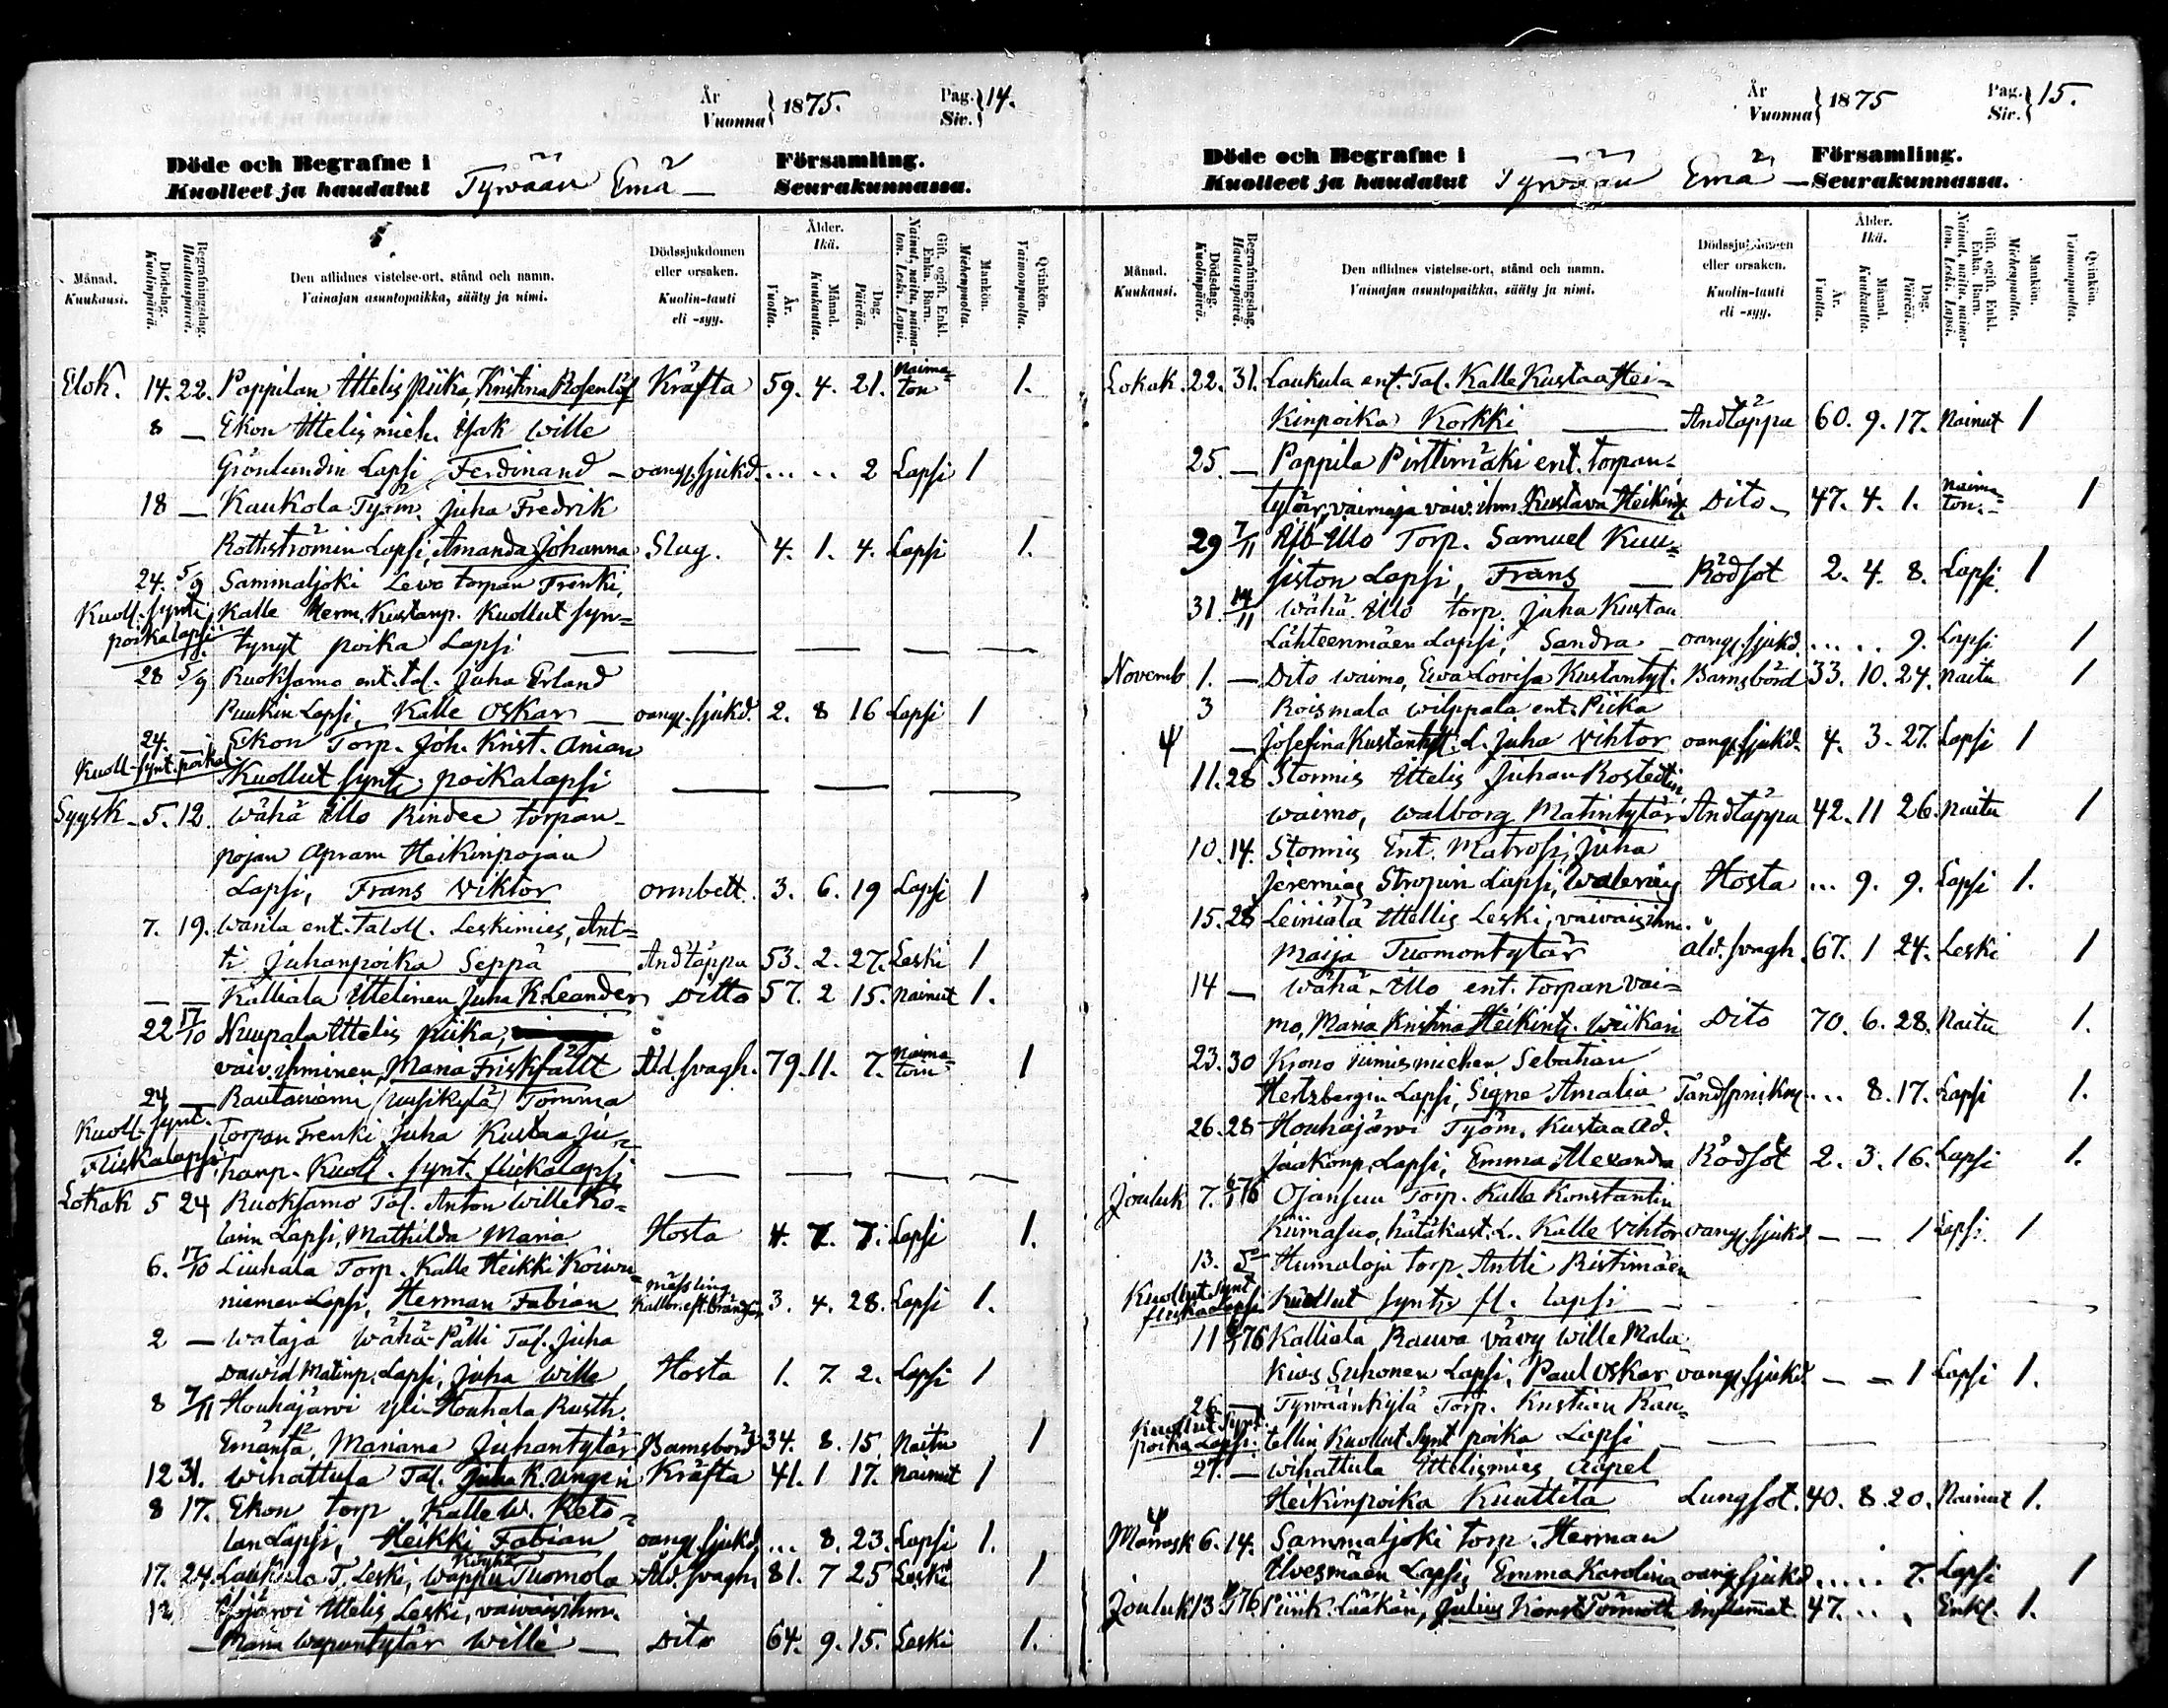 År
Vuonna } 1875.
Pag.
Siv. } 14.
Döde och Begrafne i
Kuolleet ja haudatut Tyrvään Emä – Församling.
Seurakunnassa.
Månad.
Kuukausi.
Dödsdag.
Kuolinpäivä.
Begrafningsdag.
Hautauspäivä.
Den aflidnes vistelse-ort, stånd och namn.
Vainajan asuntopaikka, sääty ja nimi.
Dödssjukdomen
eller orsaken.
Kuolin-tauti
eli -syy.
Ålder.
Ikä.
År.
Vuotta.
Månad.
Kuukautta.
Dag.
Päivää.
Gift, ogift, Enkl.
Enka, Barn.
Nainut, naitu, naima-
ton. Leski. Lapsi.
Mankön.
Miehenpuolta.
Qvinkön.
Vaimonpuolta.
Elok. 14. 22. Pappilan Ittelis Piika, Kristina Rosenlöf Kräfta 59. 4. 21. Naima-ton 1.
8 — Ekon Ittelis mieh. Isak Wille
Grönlundin Lapsi, Ferdinand – oang. sjukd. ... .. 2 Lapsi 1
18 — Kaukola Työm. Juha Fredrik
Rothströmin Lapsi, Amanda Johanna Slag. 4. 1. 4. Lapsi 1.
24. 5/9 Sammaljoki Lewo torpan Trenki,
Kuoll. synt. Kalle Herm. Kustanp. Kuollut syn-
poikalapsi tynyt poika Lapsi — — — — —
28 5/9 Ruoksamo ent. tal. Juha Erland
Puukin Lapsi, Kalle Oskar — oang. sjukd. 2. 8 16 Lapsi 1
24. — Ekon Torp. Joh. Krist. Anian
Kuoll. synt. poikal. Kuollut synt. poikalapsi — — —
Syysk. 5. 12. Wähä Illo Rindee torpan-
pojan Apram Heikinpojan
Lapsi, Frans Viktor ormbett. 3. 6. 19 Lapsi 1
7. 19. Warila ent. Taloll. Leskimies, Ant-
ti Juhanpoika Seppä Andtäppa 53. 2. 27. Leski 1
— — Kalliala Ittelinen Juha K. Leander Ditto 57. 2 15. Nainut 1.
22 17/10 Nuupala Ittelis piika,
vaiv. ihminen, Maria Friskfält Åld. svagh. 79. 11. 7. Naima-toin 1
24 — Rautaniemi (uusikylä) Tomma
Kuoll. synt. torpan Trenki Juha Kustaa Ju-
flickalapsi hanp. Kuoll. synt. flickalapsi — — — —
Lokak 5 24 Ruoksamo Tal. Anton Wille Ko-
larin Lapsi, Mathilda Maria Hosta 4. 7. 7. Lapsi 1.
6. 17/10 Liuhala Torp. Kalle Heikki Koiwu-
niemen Lapsi, Herman Fabian mässling Kallbr. eft. 3. 4. 28. Lapsi 1.
2 — Wataja Wähä-Pälli Tal. Juha
Dawid Matinp. Lapsi, Juha Wille Hosta 1. 7. 2. Lapsi 1
8 7/11 Houhajärvi yli-Houhala Rusth.
Emäntä, Mariana Juhantytär Barnsbörd 34. 8. 15 Naitu 1
12 31. Wihattula Tal. Juha K. Ungen Kräfta 41. 1 17. Nainut 1
8 17. Ekon torp Kalle W. Keto-
lan Lapsi, Heikki Fabian oang. sjukd. ... 8. 23. Lapsi 1.
17. 24. Laukula T. Leski, Wappu Tuomola Åld. svagh. 81. 7 25 Leski 1
12 Ittelis Leski, vaivaisihm.
— Maria Wapuntytär Wille — Dito 64. 9. 15. Leski 1.
År
Vuonna } 1875
Pag.
Siv. } 15.
Döde och Begrafne i
Kuolleet ja haudatut Tyrvään Emä – Församling.
Seurakunnassa.
Månad.
Kuukausi.
Dödsdag.
Kuolinpäivä.
Begrafningsdag.
Hautauspäivä.
Den aflidnes vistelse-ort, stånd och namn.
Vainajan asuntopaikka, sääty ja nimi.
Dödssjukdomen
eller orsaken.
Kuolin-tauti
eli -syy.
Ålder.
Ikä.
År.
Vuotta.
Månad.
Kuukautta.
Dag.
Päivää.
Gift, ogift, Enkl.
Enka, Barn.
Nainut, naitu, naima-
ton. Leski. Lapsi.
Mankön.
Miehenpuolta.
Qvinkön.
Vaimonpuolta.
Lokak. 22. 31. Laukula ent. Tal. Kalle Kustaa Hei-
kinpoika Korkki — Andtäppa 60. 9. 17. Nainut 1
25. — Pappila Pirttimäki ent. torpan-
tytär, vaimaja vaiv. ihm. Kustava Heikint. Dito – 47. 4. 1. Naima-ton. 1
29 7/11 Illo Torp. Samuel Kuu-
siston Lapsi, Frans — Rödsot 2. 4. 8. Lapsi 1
31. 14/11 Wähä Illo torp. Juha Kustaa
Lähteenmäen Lapsi, Sandra – oang. sjukd. ... .. 9. Lapsi 1
Novemb 1. — Dito waimo, Ewa Lovisa Kustantyt. Barnsbörd 33. 10. 24. Naitu 1
3 Roismala Wilppala ent. Piika
4 — Josefina Kustantyt. L. Juha Vihtor oang. sjukd. 4. 3. 27. Lapsi 1
11. 28 Stormis Ittelis Juhan Rostedtin
waimo, Walborg Matintytär Andtäppa 42. 11 26. Naitu 1
10. 14. Stormis Ent. Matrosi, Juha
Jeremias Lapsi, Walerius Hosta ... 9. 9. Lapsi 1.
15. 28 Leiniälä Ittellis Leski, vaivaisihm.
Maija Tuomontytär åld. svagh. 67. 1 24. Leski 1
14 — Wähä-Illo ent. Torpan vai-
mo, Maria Kristina Heikint. Wiikari Dito 70. 6. 28. Naitu 1.
23. 30 Krono nimismiehen Sebatian
Hertzbergin Lapsi, Signe Amalia ... 8. 17. Lapsi 1.
26. 28 Houhajärvi Työm. Kustaa Ad.
Jaakonp. Lapsi, Emma Alexandra Rödsot 2. 3. 16. Lapsi 1.
Jouluk 7. 76 Ojansuu Torp. Kalle Konstantin
Kiimasuo, hätäkast. L. Kalle Vihtor oang. sjukd — — 1 Lapsi 1
13. Humaloja torp. Antti Ristimäen
Kuollut synt. flickalapsi Kuollut synt. fl. lapsi — — — —
11 76 Kalliala, Rauva vävy Wille Mala-
kias Suhonen Lapsi, Paul Oskar oang. sjukd — — 1 Lapsi 1.
26 — Tyrväänkylä Torp. Kristian Ran-
Kuollut synt. poika Lapsi. tellin Kuollut Synt poika Lapsi — — — —
27. — Wihattula Ittelismies Aapel
Heikinpoika Kuuttila Lungsot. 40. 8. 20. Nainut 1.
Marrask 6. 14. Sammaljoki torp. Herman
Ilvesmäen Lapsi, Emma Karolina oang. sjukd ... .. 7. Lapsi 1
Jouluk 13 76. Lääkäri, Julius Konst Törnroth Inflammat. 47. .. . Enkl. 1.